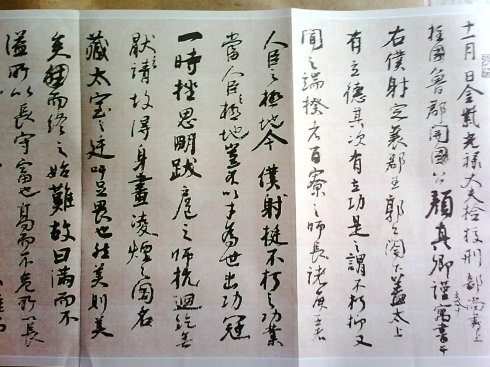 十一月日金紫光祿大夫檢校刑部尚書上
柱國魯郡開國公顏真卿謹寓書于
右僕射定襄郡王郭公閣下蓋太上
有立德其次有立功是之謂不朽抑又
聞之端揆者百寮之師長諸侯王者
人臣之極地今僕射挺不朽之功業
當人臣之極地豈不以才為世出功冠
一時挫思明跋扈之師抗迴紇無
厭之請故得身畫凌煙之閣名
藏太室之廷吁足畏也然美則美
矣而終之始難故曰滿而不
溢所以長守富也高而不危所以長